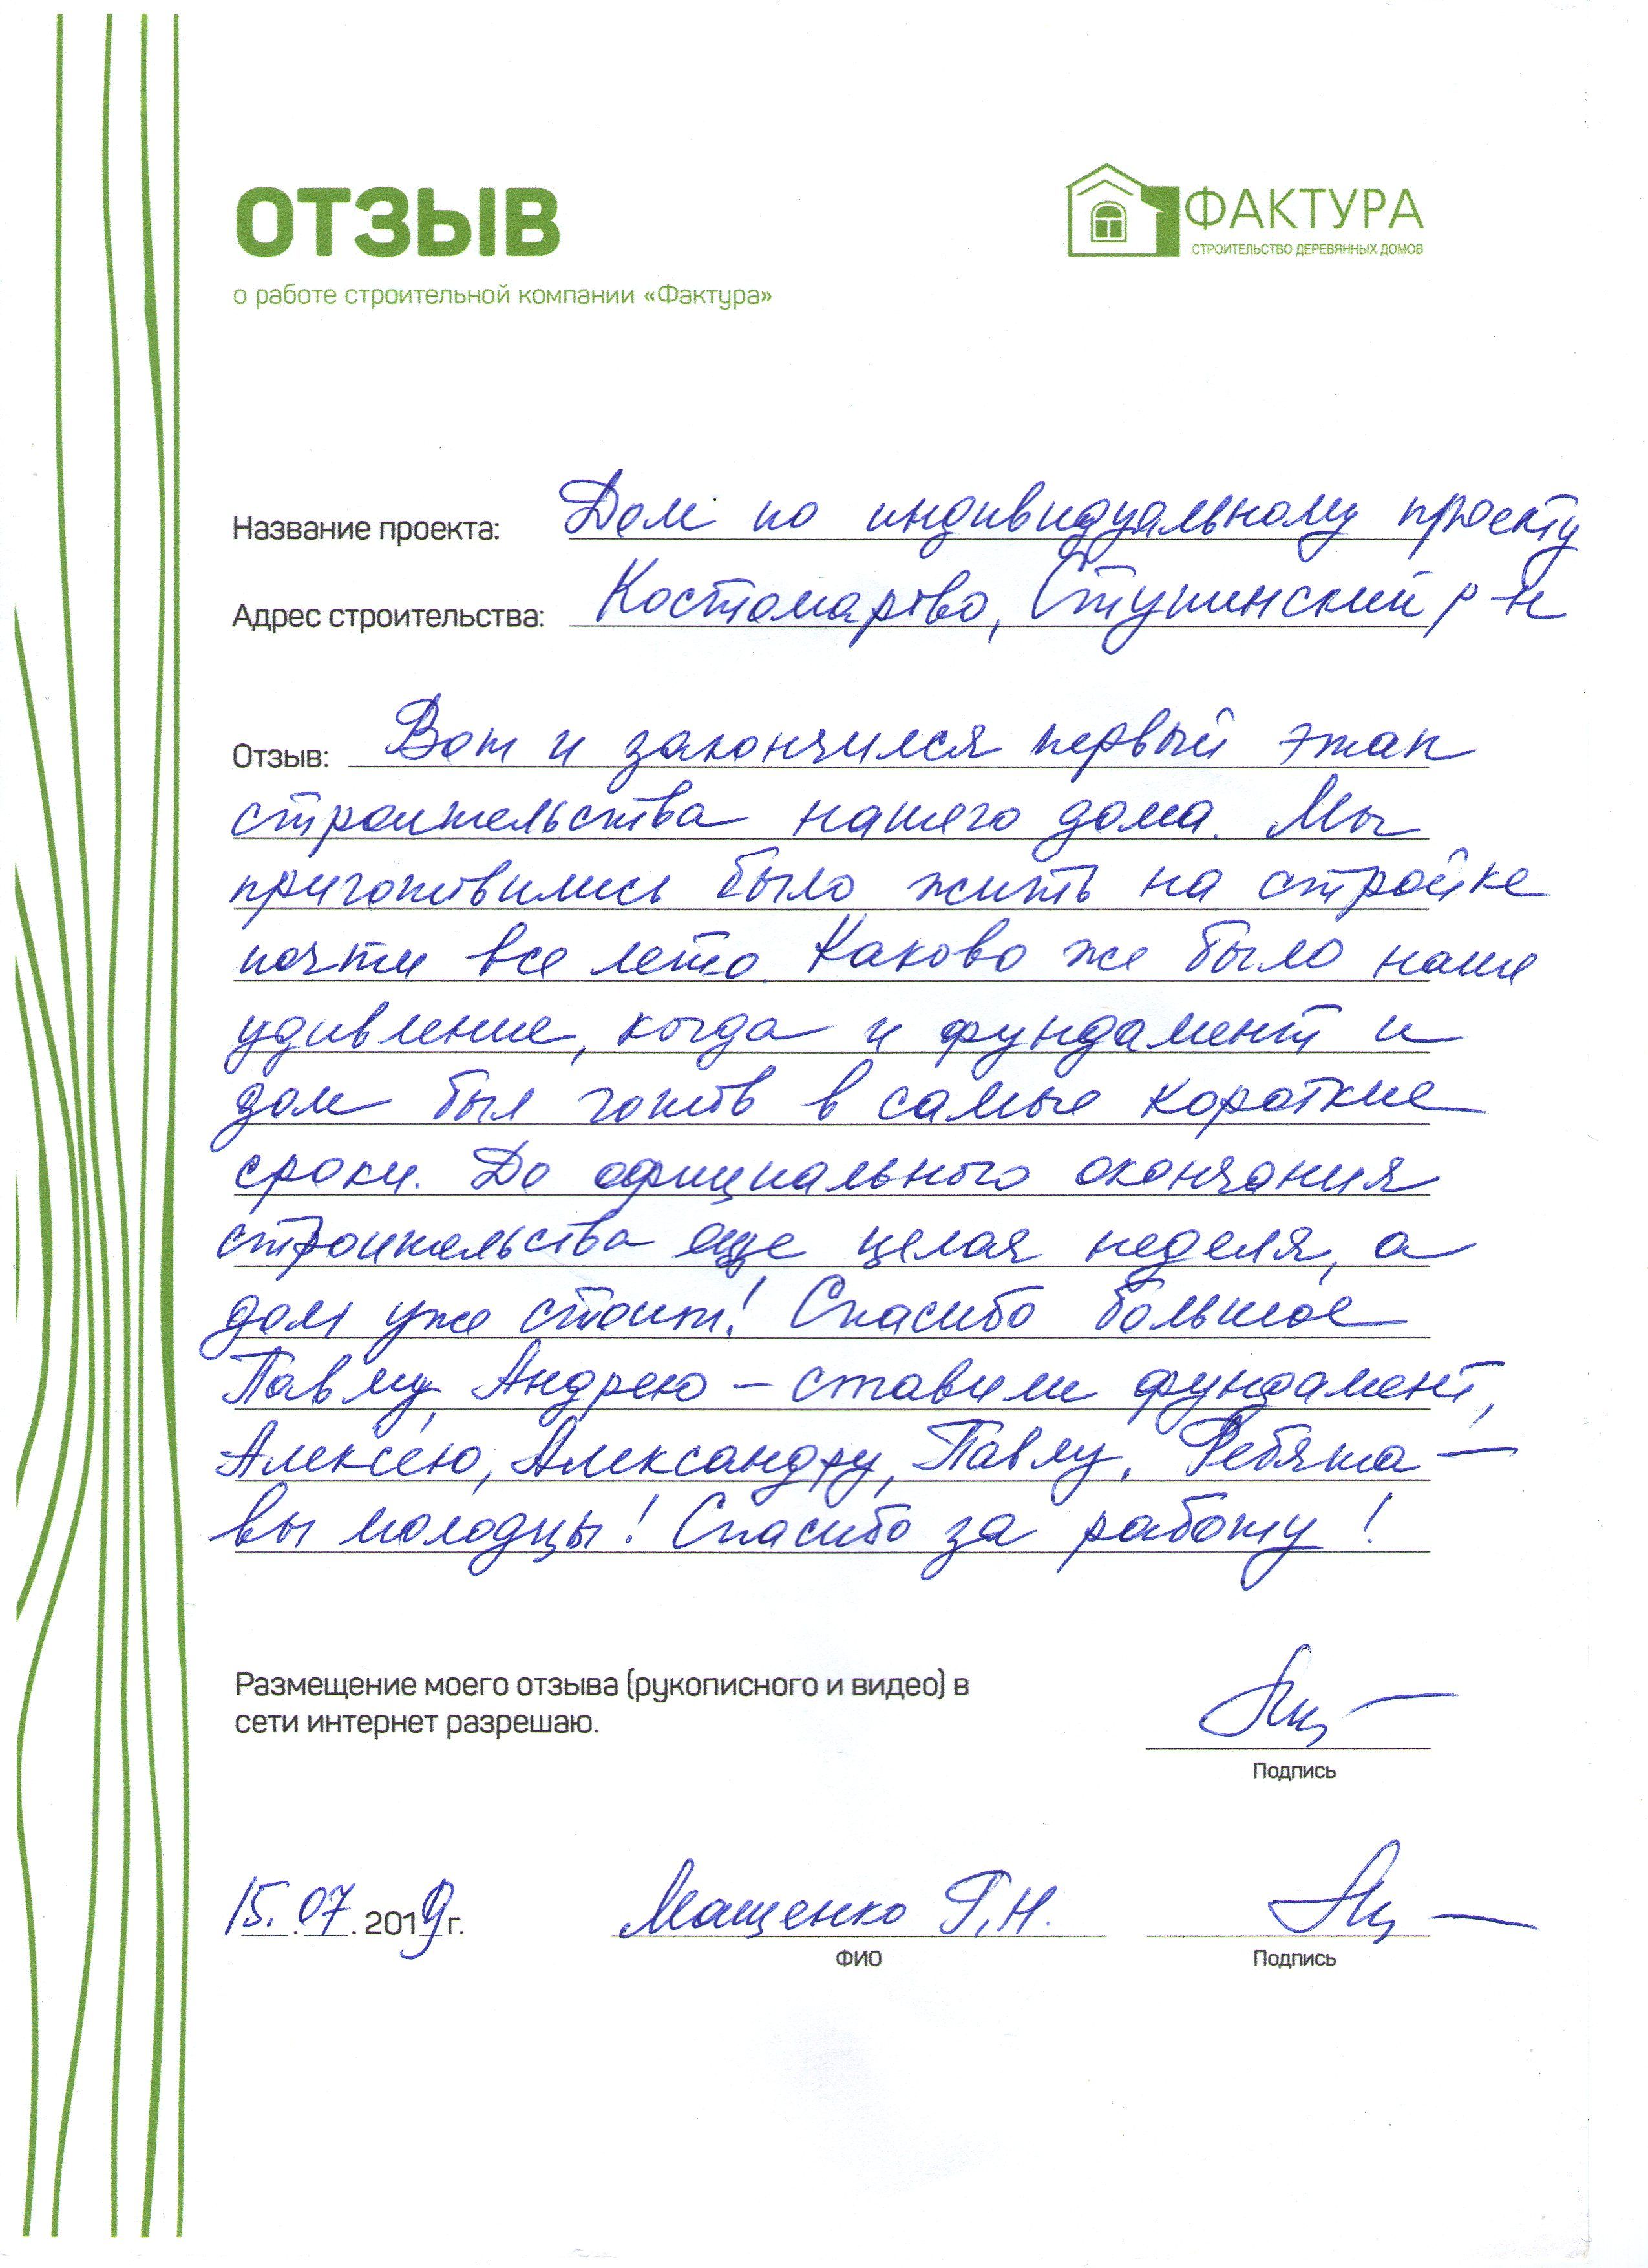 ОТЗЫВ
о работе строительной компании «Фактура»
ФАКТУРА
СТРОИТЕЛЬСТВО ДЕРЕВЯННЫХ ДОМОВ
Название проекта: Дом по индивидуальному проекту
Адрес строительства: Костомарово, Ступинский р-н
Отзыв: Вот и закончился первый этап
строительства нашего дома. Мы
приготовились было жить на стройке
почти все лето. Каково же было наше
удивление, когда и фундамент и
дом был готов в самые короткие
сроки. До официального окончания
строительства еще целая неделя, а
дом уже стоит! Спасибо большое
Павлу, Андрею – ставили фундамент,
Алексею, Александру, Павлу. Ребята –
вы молодцы! Спасибо за работу!
Размещение моего отзыва (рукописного и видео) в
сети интернет разрешаю.
Подпись
15.07.2019г. Мащенко Г.Н.
ФИО
Подпись